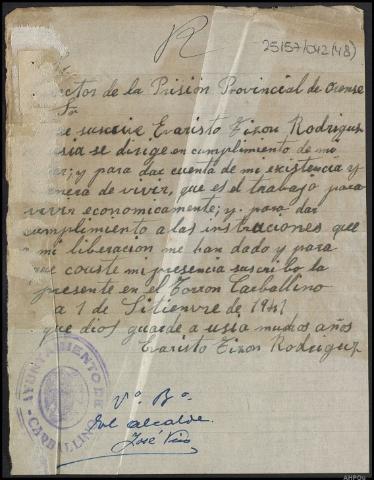 R
25157/042(48)
ctor de la Prisión Provincial de Orense
Sr
se suscrive Evaristo Tizon Rodriguz
usia se dirige en cumplimiento de mi
y para dar cuenta de mi existencia y
de vivir, que es el trabajo para
vivir economicamente; y para dar
cumplimiento a las instruciones que
mi liberacion me han dado y para
que couste mi presencia suscribo la
presente en el Torron Carballino
a 1 de Sitienvre de 1941
que dios guarde a usia muchos años
Evaristo Tizon Rodriguz
AYUNTAMIENTO DE
CARBALLINO
Vº. Bº.
alcalde
José
AHPOu